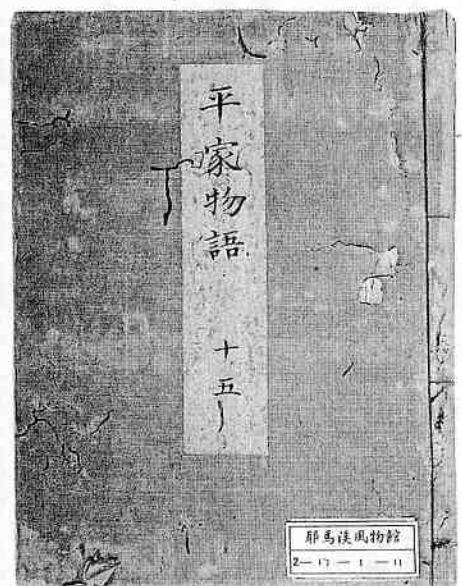 平家物語 十五
耶馬渓風物館
2—17—1—11